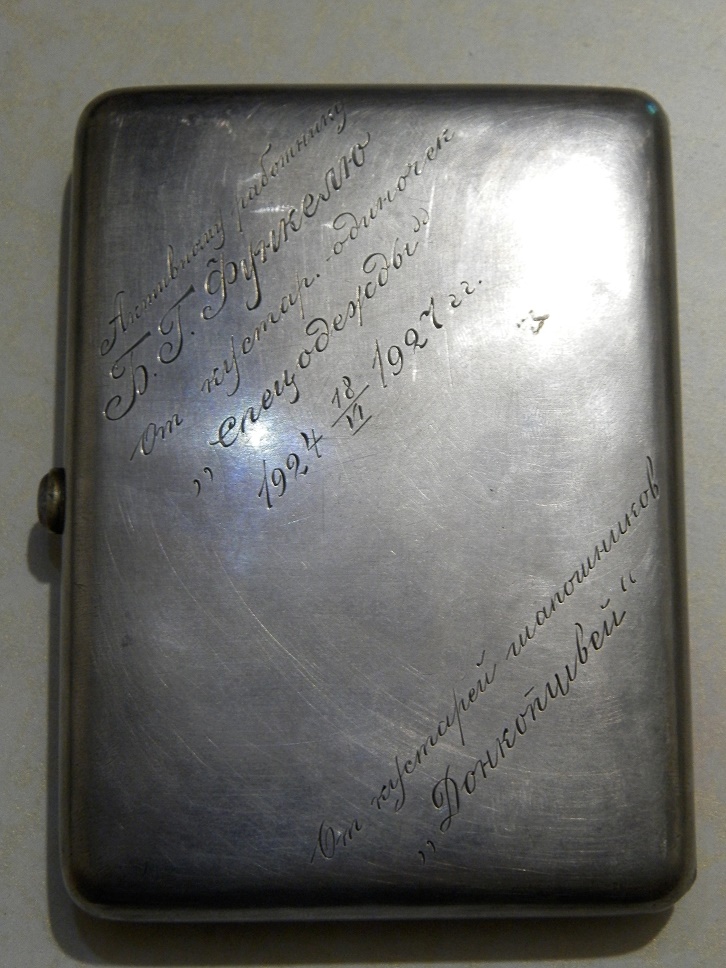 Активному работнику
Б. Г. Функелю
От кустар. одиночек
„Спецодежды"
1924 18/VI 1927 гг.
От кустарей шапошников
„Донкопшвей"